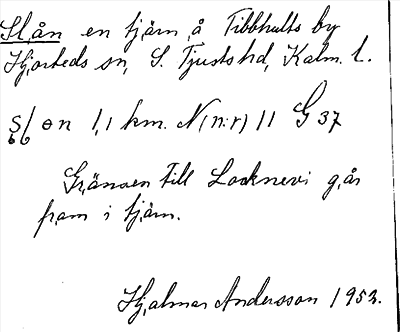 Slån en tjärn å Tibbhults by
Hjorteds sn, S. Tjusts hd, Kalm. l.
en 1,1 km. N(n:r) 11 G 37
Gränsen till Locknevi går
fram i tjärn.
Hjalmar Andersson 1952.